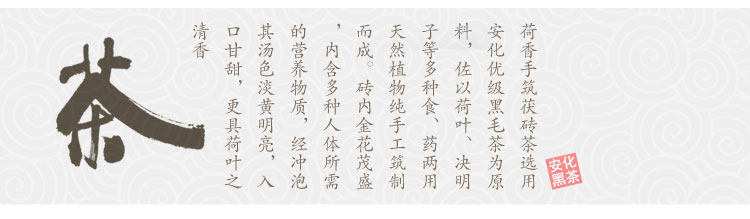 荷香手筑茯砖茶选用
安化优级黑毛茶为原
料，佐以荷叶、决明
子等多种食、药两用
天然植物纯手工筑制
而成。砖内金花茂盛
，内含多种人体所需
的营养物质，经冲泡
其汤色淡黄明亮，入
口甘甜，更具荷叶之
清香
茶
安化
黑茶